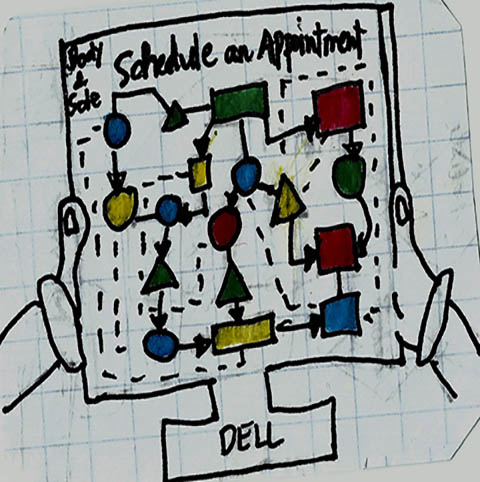 Body
&
Sole
Schedule an Appointment
DELL